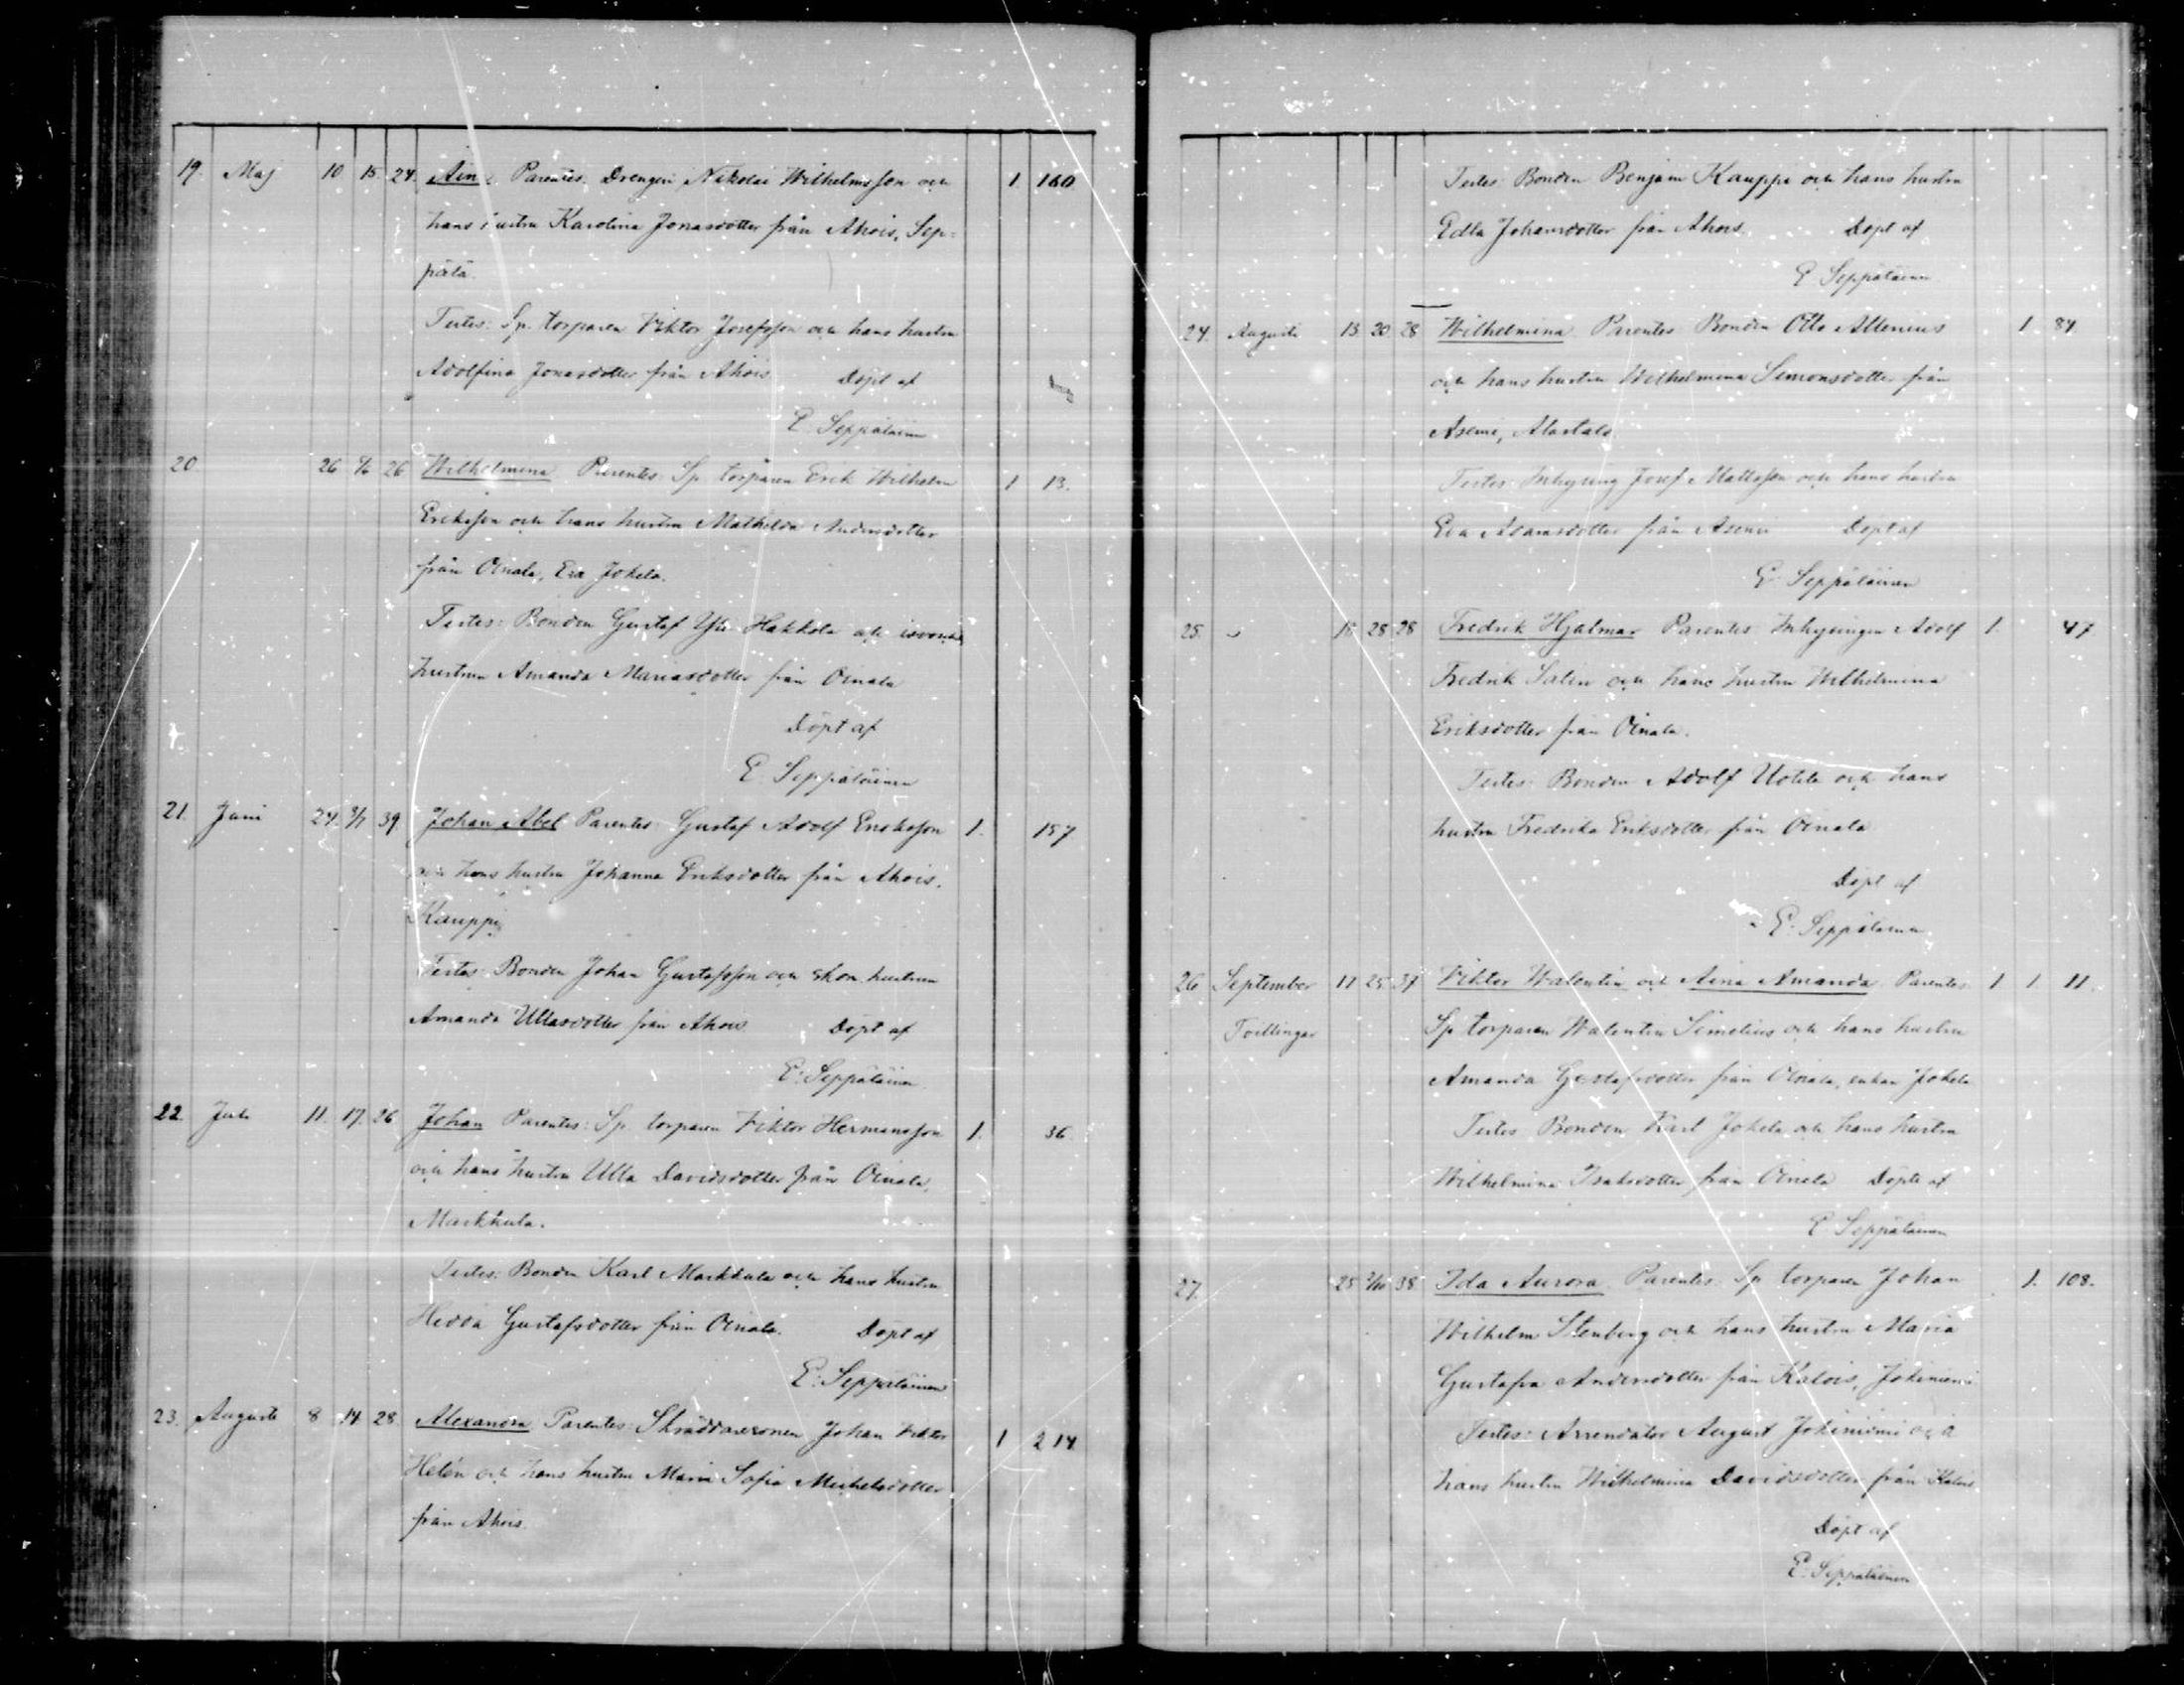 19. Maj 10 15. 24. Aina Parentes: Drengen Nikolai Wilhelmsson och 1 160
hans hustru Karolina Jonasdotter från Ahois, Sep-
pälä.
Testes: Sp. torparen Viktor Josefsson och hans hustru
Adolfina Jonasdotter från Ahois. Döpt af
E. Seppäläinen
20. 26 26 Wilhelmina Parentes: Sp. torparen Erik Wilhelm 1 13.
Eriksson och hans hustru Mathilda Andersdotter
från Oinala, Era Jokela.
Testes: Bonden Gustaf Yli Hakkola och
hustrun Amanda Mariasdotter från Oinala
Döpt af
E. Seppäläinen
21. Juni 24. 3/7 39 Johan Abel Parentes: Gustaf Adolf Eriksson 1. 157
och hans hustru Johanna Eriksdotter från Ahois,
Kauppi
Testes: Bonden Johan Gustafsson och skom. hustrun
Amanda Ullasdotter från Ahois Döpt af
E. Seppäläinen
22. Juli 11. 17. 26 Johan Parentes: Sp. torparen Viktor Hermansson 1. 36
och hans hustru Ulla Davidsdotter från Oinala,
Markkula.
Testes: Bonden Karl Markkula och hans hustru
Hedda Gustafsdotter från Oinala. Döpt af
E. Seppäläinen
23. Augusti 8 14 28 Alexandra Parentes: Skräddaresonen Johan Viktor 1 214
Helén och hans hustru Maria Sofia Michelsdotter
från Ahois.
Testes: Bonden Benjam Kauppi och hans hustru
Edla Johansdotter från Ahois. Döpt af
E. Seppäläinen
24. Augusti 13. 20. 28 Wilhelmina Parentes: Bonden Otto Allenius 1 84.
och hans hustru Wilhelmina Simonsdotter från
Asemi, Alastalo
Testes: Inhysing Josef Mattsson och hans hustru
Eva Adamsdotter från Asemi Döpt af
E. Seppäläinen
25. 28 28 Fredrik Hjalmar Parentes: Inhysingen Adolf 1. 47
Fredrik Salin och hans hustru Wilhelmina
Eriksdotter från Oinala.
Testes: Bonden Adolf Uotila och hans
hustru Fredrika Eriksdotter från Oinala
Döpt af
E. Seppäläinen
26 September 17 25. 37 Viktor Walentin och Aina Amanda Parentes 1 1 11.
Tvillingar Sp. torparen Walentin Simelius och hans hustru
Amanda Gustafsdotter från Oinala, Jokela
Testes: Bonden Karl Jokela och hans hustru
Wilhelmina Isaksdotter från Oinala Döpte af
E. Seppäläinen
27. 25 2/10 38 Ida Aurora. Parentes: Sp. torparen Johan 1. 108.
Wilhelm Stenberg och hans hustru Maria
Gustafva Andersdotter från Kalois, Jokiniemi
Testes: Arrendator August Jokiniemi och
hans hustru Wilhelmina Davidsdotter från Kalois
Döpt af
E. Seppäläinen